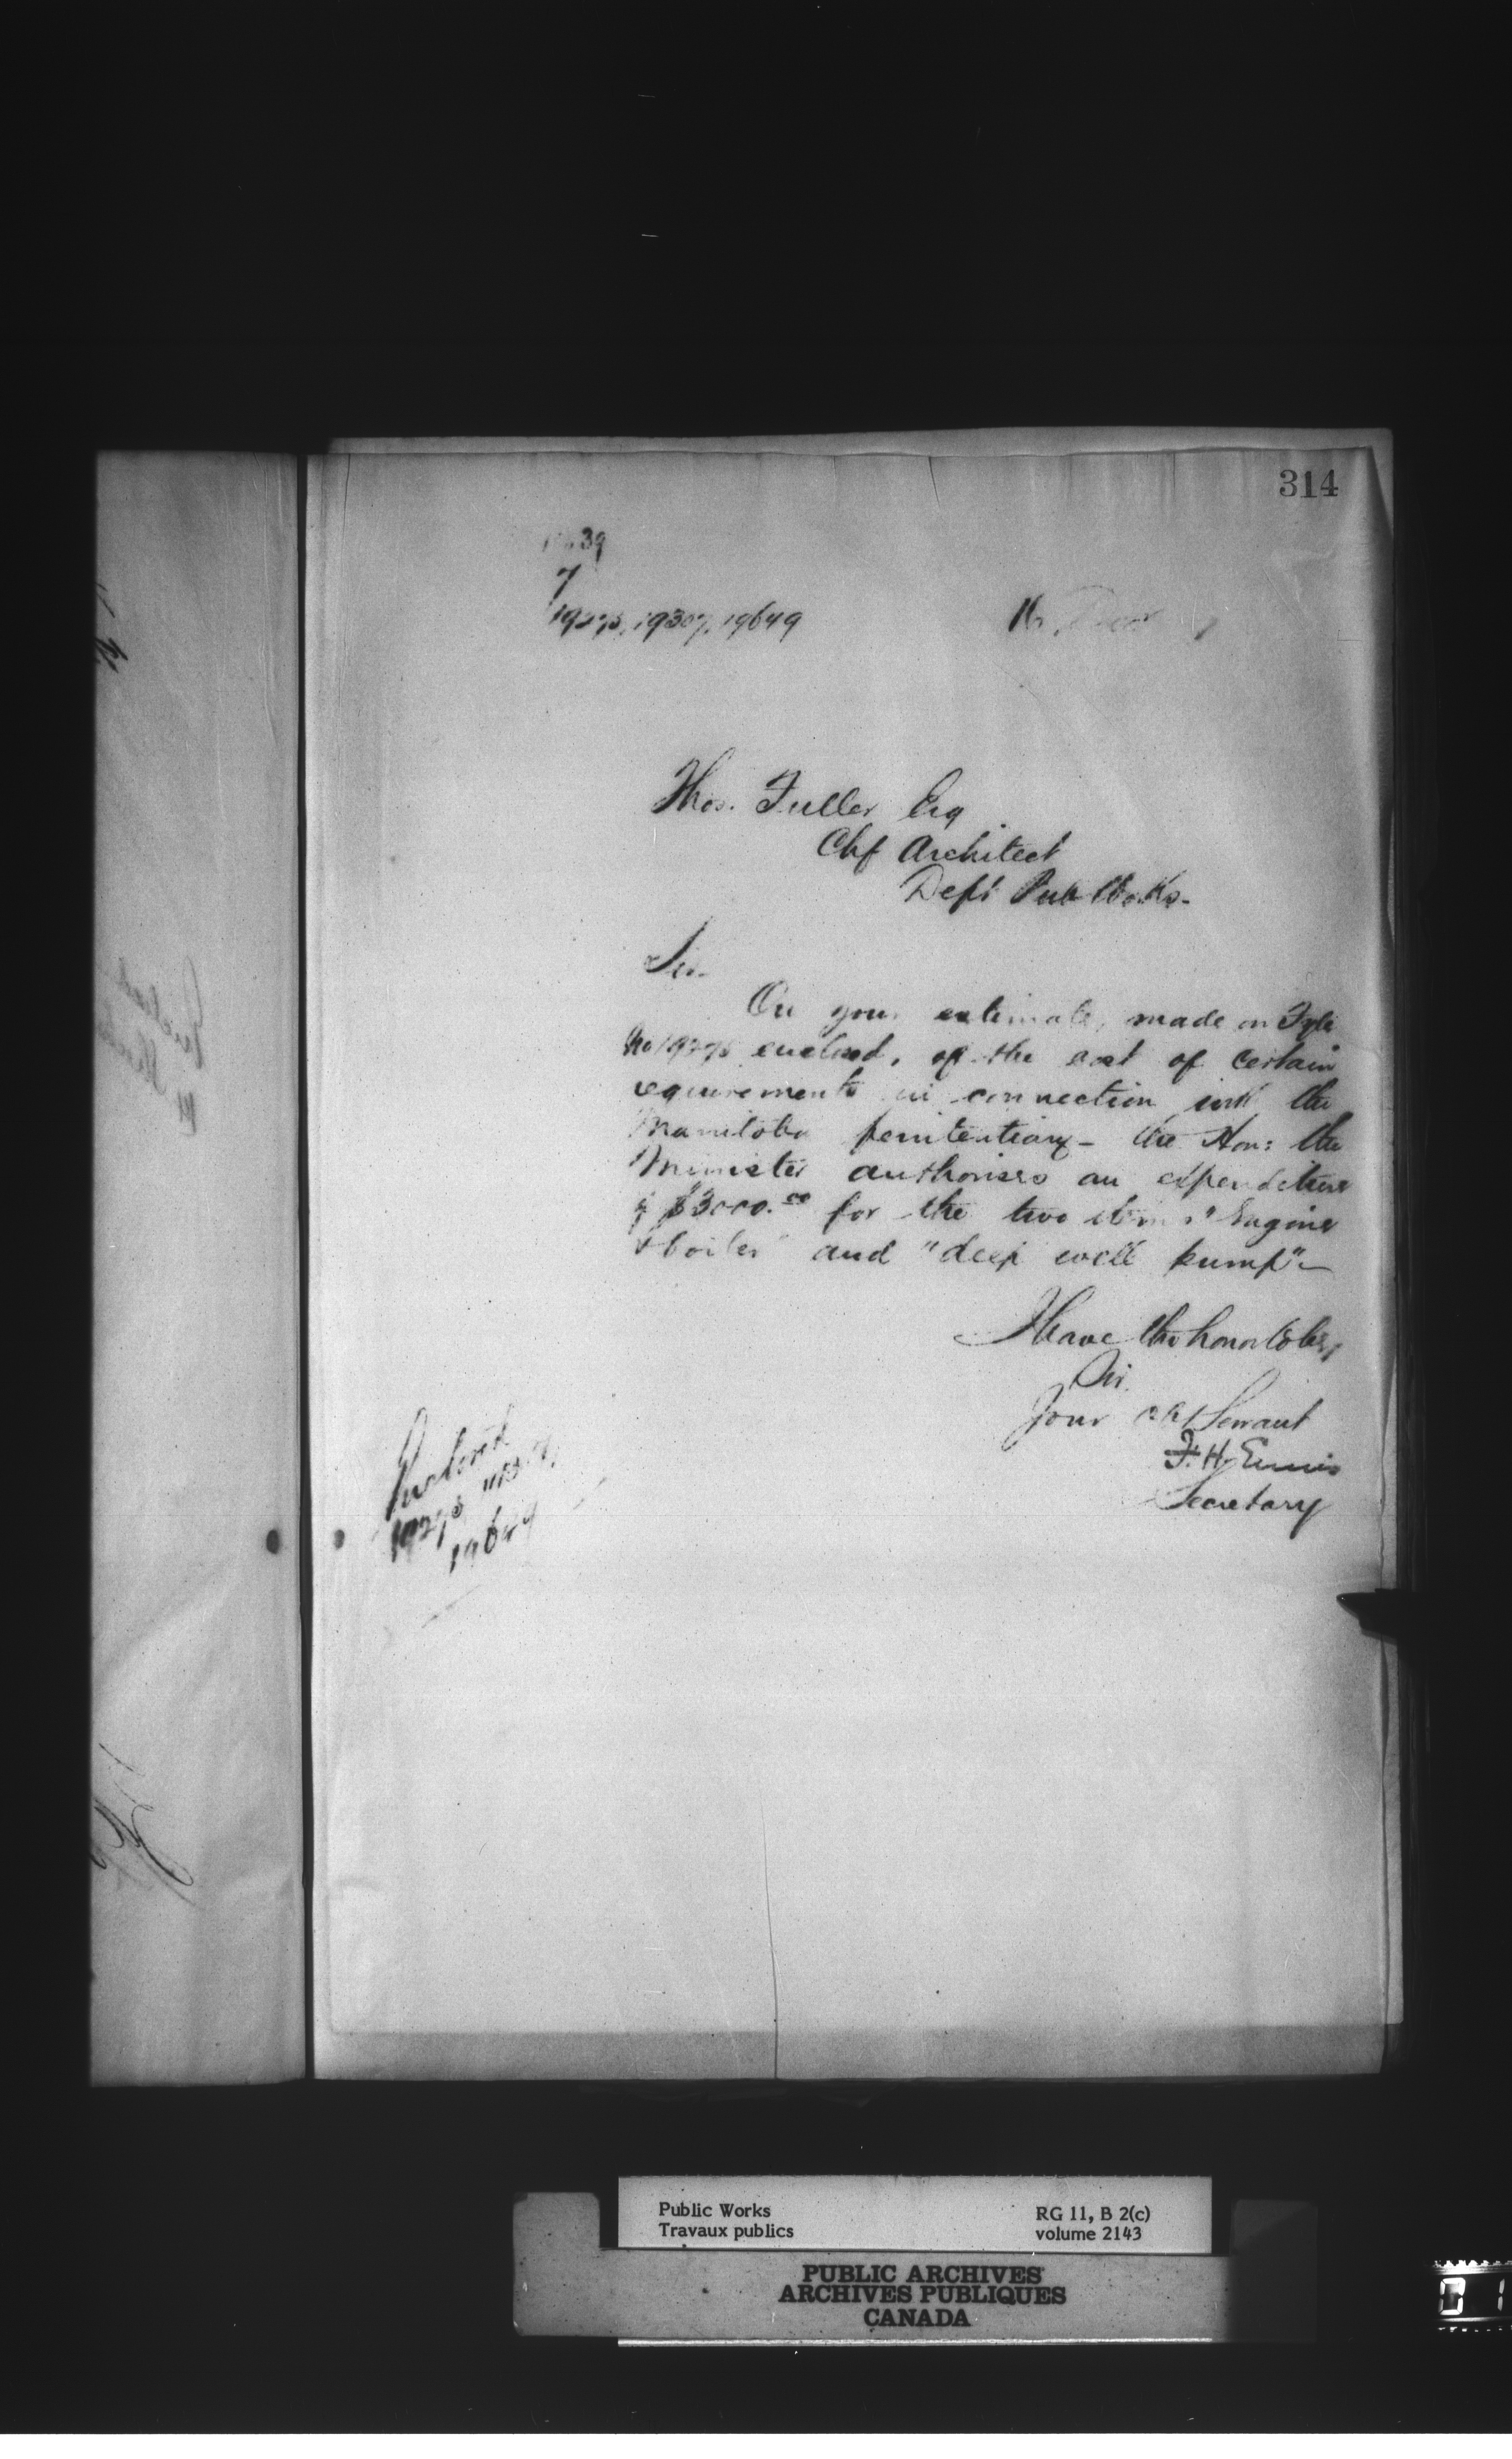 314
7
19275, 19307, 19649
16
Thos. Fuller Esq
Chf Architect
Dept Pub Works.
Sir.
On your estimate, made on Fyle
No 19275 enclosed, of the cost of certain
requirements in connection with the
Manitoba penitentiary - the Hon: the
Minister authorises an expenditure
of $3000.00 for the two items "Engine
& boiler" and "deep well pump" -
I have the honor to be,
Sir.
Your obt Servant
F. H. Ennis
Secretary
19275
19649
Public Works
Travaux publics
RG 11, B 2(c)
volume 2143
PUBLIC ARCHIVES
ARCHIVES PUBLIQUES
CANADA